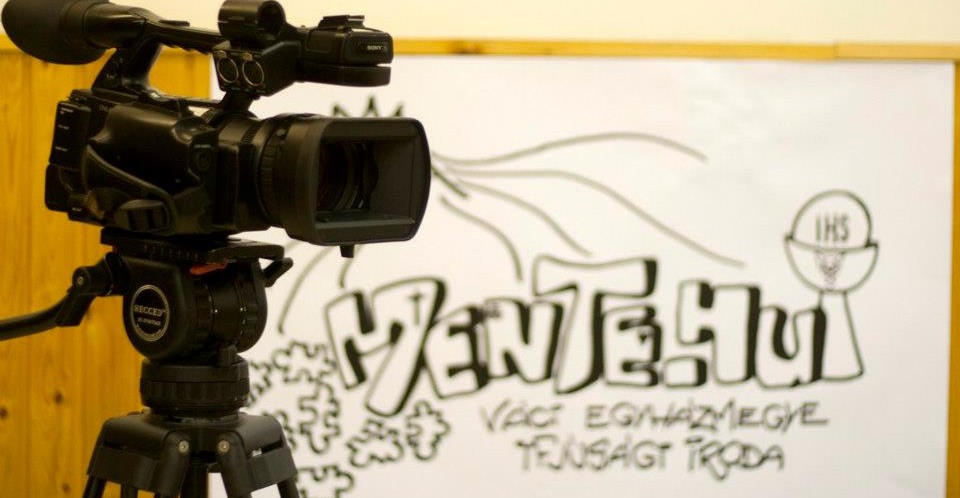 SONY
IHS
MENTEHU
VÁCI EGYHÁZMEGYE
IFJÚSÁGI IRODA